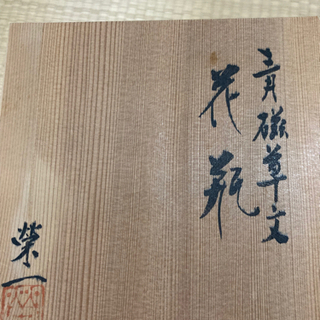 青磁草文
花瓶
栄一